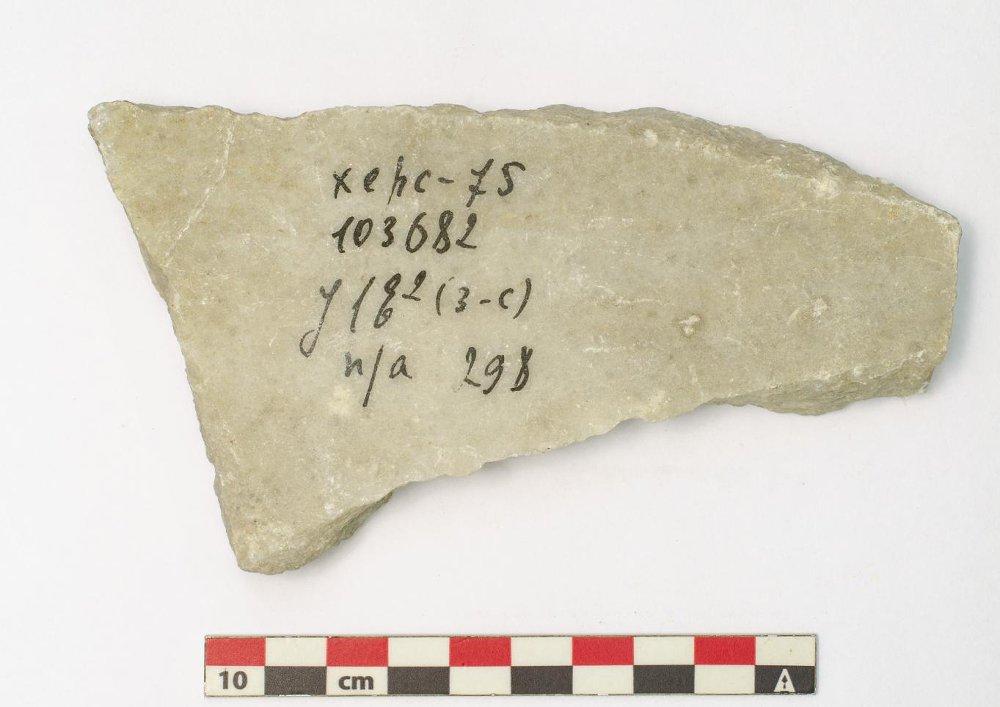 херс-75
103682
(3-с)
п/а 298
10 cm
A